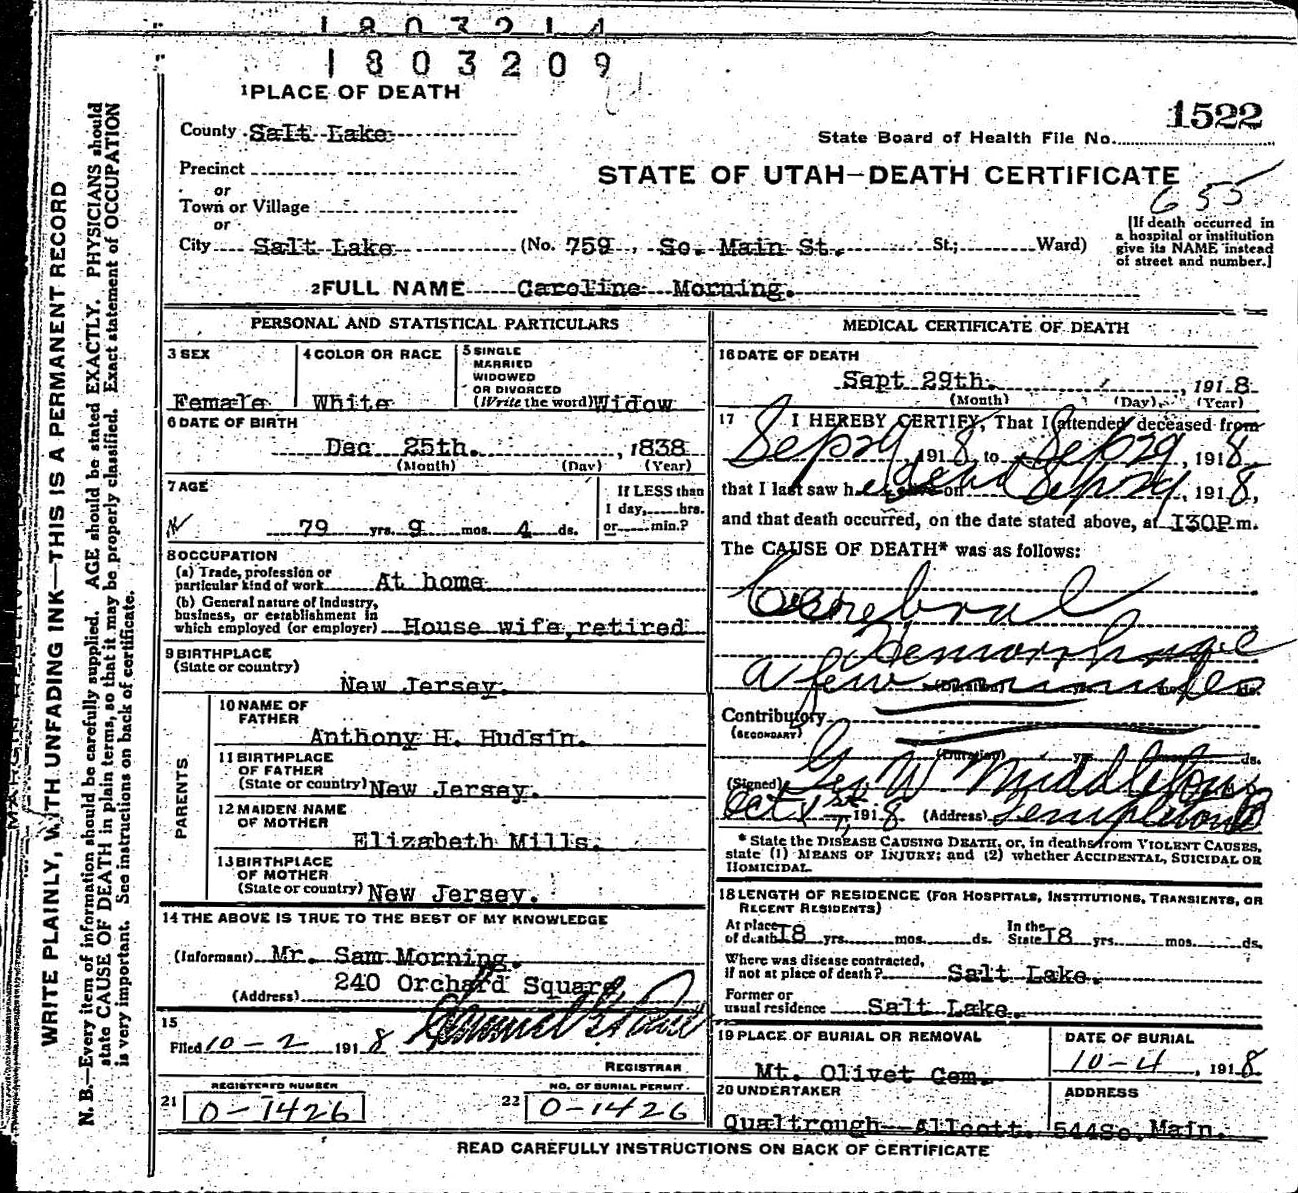 1803214
1803209
1PLACE OF DEATH
1522
County Salt Lake
State Board of Health File No.
Precinct
STATE OF UTAH—DEATH CERTIFICATE
or
655
Town or Village
or
[If death occurred in
a hospital or institution
give its NAME instead
of street and number.]
City Salt Lake (No. 759, So. Main St. St.; Ward)
2FULL NAME Caroline Morning.
PERSONAL AND STATISTICAL PARTICULARS
3 SEX
Female
4 COLOR OR RACE
White
5 SINGLE
MARRIED
WIDOWED
OR DIVORCED
(Write the word) Widow
6 DATE OF BIRTH
Dec 25th. , 1838
(Month) (Day) (Year)
7 AGE
79 yrs. 9 mos. 4 ds.
If LESS than
1 day, hrs.
or min.?
8 OCCUPATION
(a) Trade, profession or
particular kind of work At home
(b) General nature of Industry,
business, or establishment in
which employed (or employer) House wife, retired
9 BIRTHPLACE
(State or country)
New Jersey.
PARENTS
10 NAME OF
FATHER
Anthony H. Hudsin.
11 BIRTHPLACE
OF FATHER
(State or country) New Jersey.
12 MAIDEN NAME
OF MOTHER
Elizabeth Mills.
13 BIRTHPLACE
OF MOTHER
(State or country) New Jersey.
14 THE ABOVE IS TRUE TO THE BEST OF MY KNOWLEDGE
(Informant) Mr. Sam Morning.
240 Orchard Square
(Address)
15
Filed 10-2 1918
REGISTRAR
REGISTERED NUMBER
21 0-1426
NO. OF BURIAL PERMIT.
22 0-1426
MEDICAL CERTIFICATE OF DEATH
16 DATE OF DEATH
Sept 29th. , 1918.
(Month) (Day) (Year)
17 I HEREBY CERTIFY, That I attended deceased from
Sep 29, 1918, to Sep 29, 1918.
that I last saw her alive on dead Sep 29, 1918,
and that death occurred, on the date stated above, at I30P m.
The CAUSE OF DEATH* was as follows:
Cerebral
Hemorrhage
a few minutes
(Duration) yrs. mos. ds.
Contributory
(SECONDARY)
(Duration) yrs. ds.
(Signed) Geo W Middleton
Oct 1st, 1918 (Address) Templeton B
* State the DISEASE CAUSING DEATH, or, in deaths from VIOLENT CAUSES,
state (1) MEANS OF INJURY; and (2) whether ACCIDENTAL, SUICIDAL OR
HOMICIDAL.
18 LENGTH OF RESIDENCE (FOR HOSPITALS, INSTITUTIONS, TRANSIENTS, OR
RECENT RESIDENTS)
At place
of death I8 yrs. mos. ds.
In the
State I8 yrs. mos. ds.
Where was disease contracted,
if not at place of death? Salt Lake.
Former or
usual residence Salt Lake.
19 PLACE OF BURIAL OR REMOVAL
Mt. Olivet Cem.
DATE OF BURIAL
10-4, 1918.
20 UNDERTAKER
Qualtrough--Allcott.
ADDRESS
544So. Main.
READ CAREFULLY INSTRUCTIONS ON BACK OF CERTIFICATE
WRITE PLAINLY, WITH UNFADING INK—THIS IS A PERMANENT RECORD
N. B.—Every item of information should be carefully supplied. AGE should be stated EXACTLY. PHYSICIANS should
state CAUSE OF DEATH in plain terms, so that it may be properly classified. Exact statement of OCCUPATION
is very important. See instructions on back of certificate.